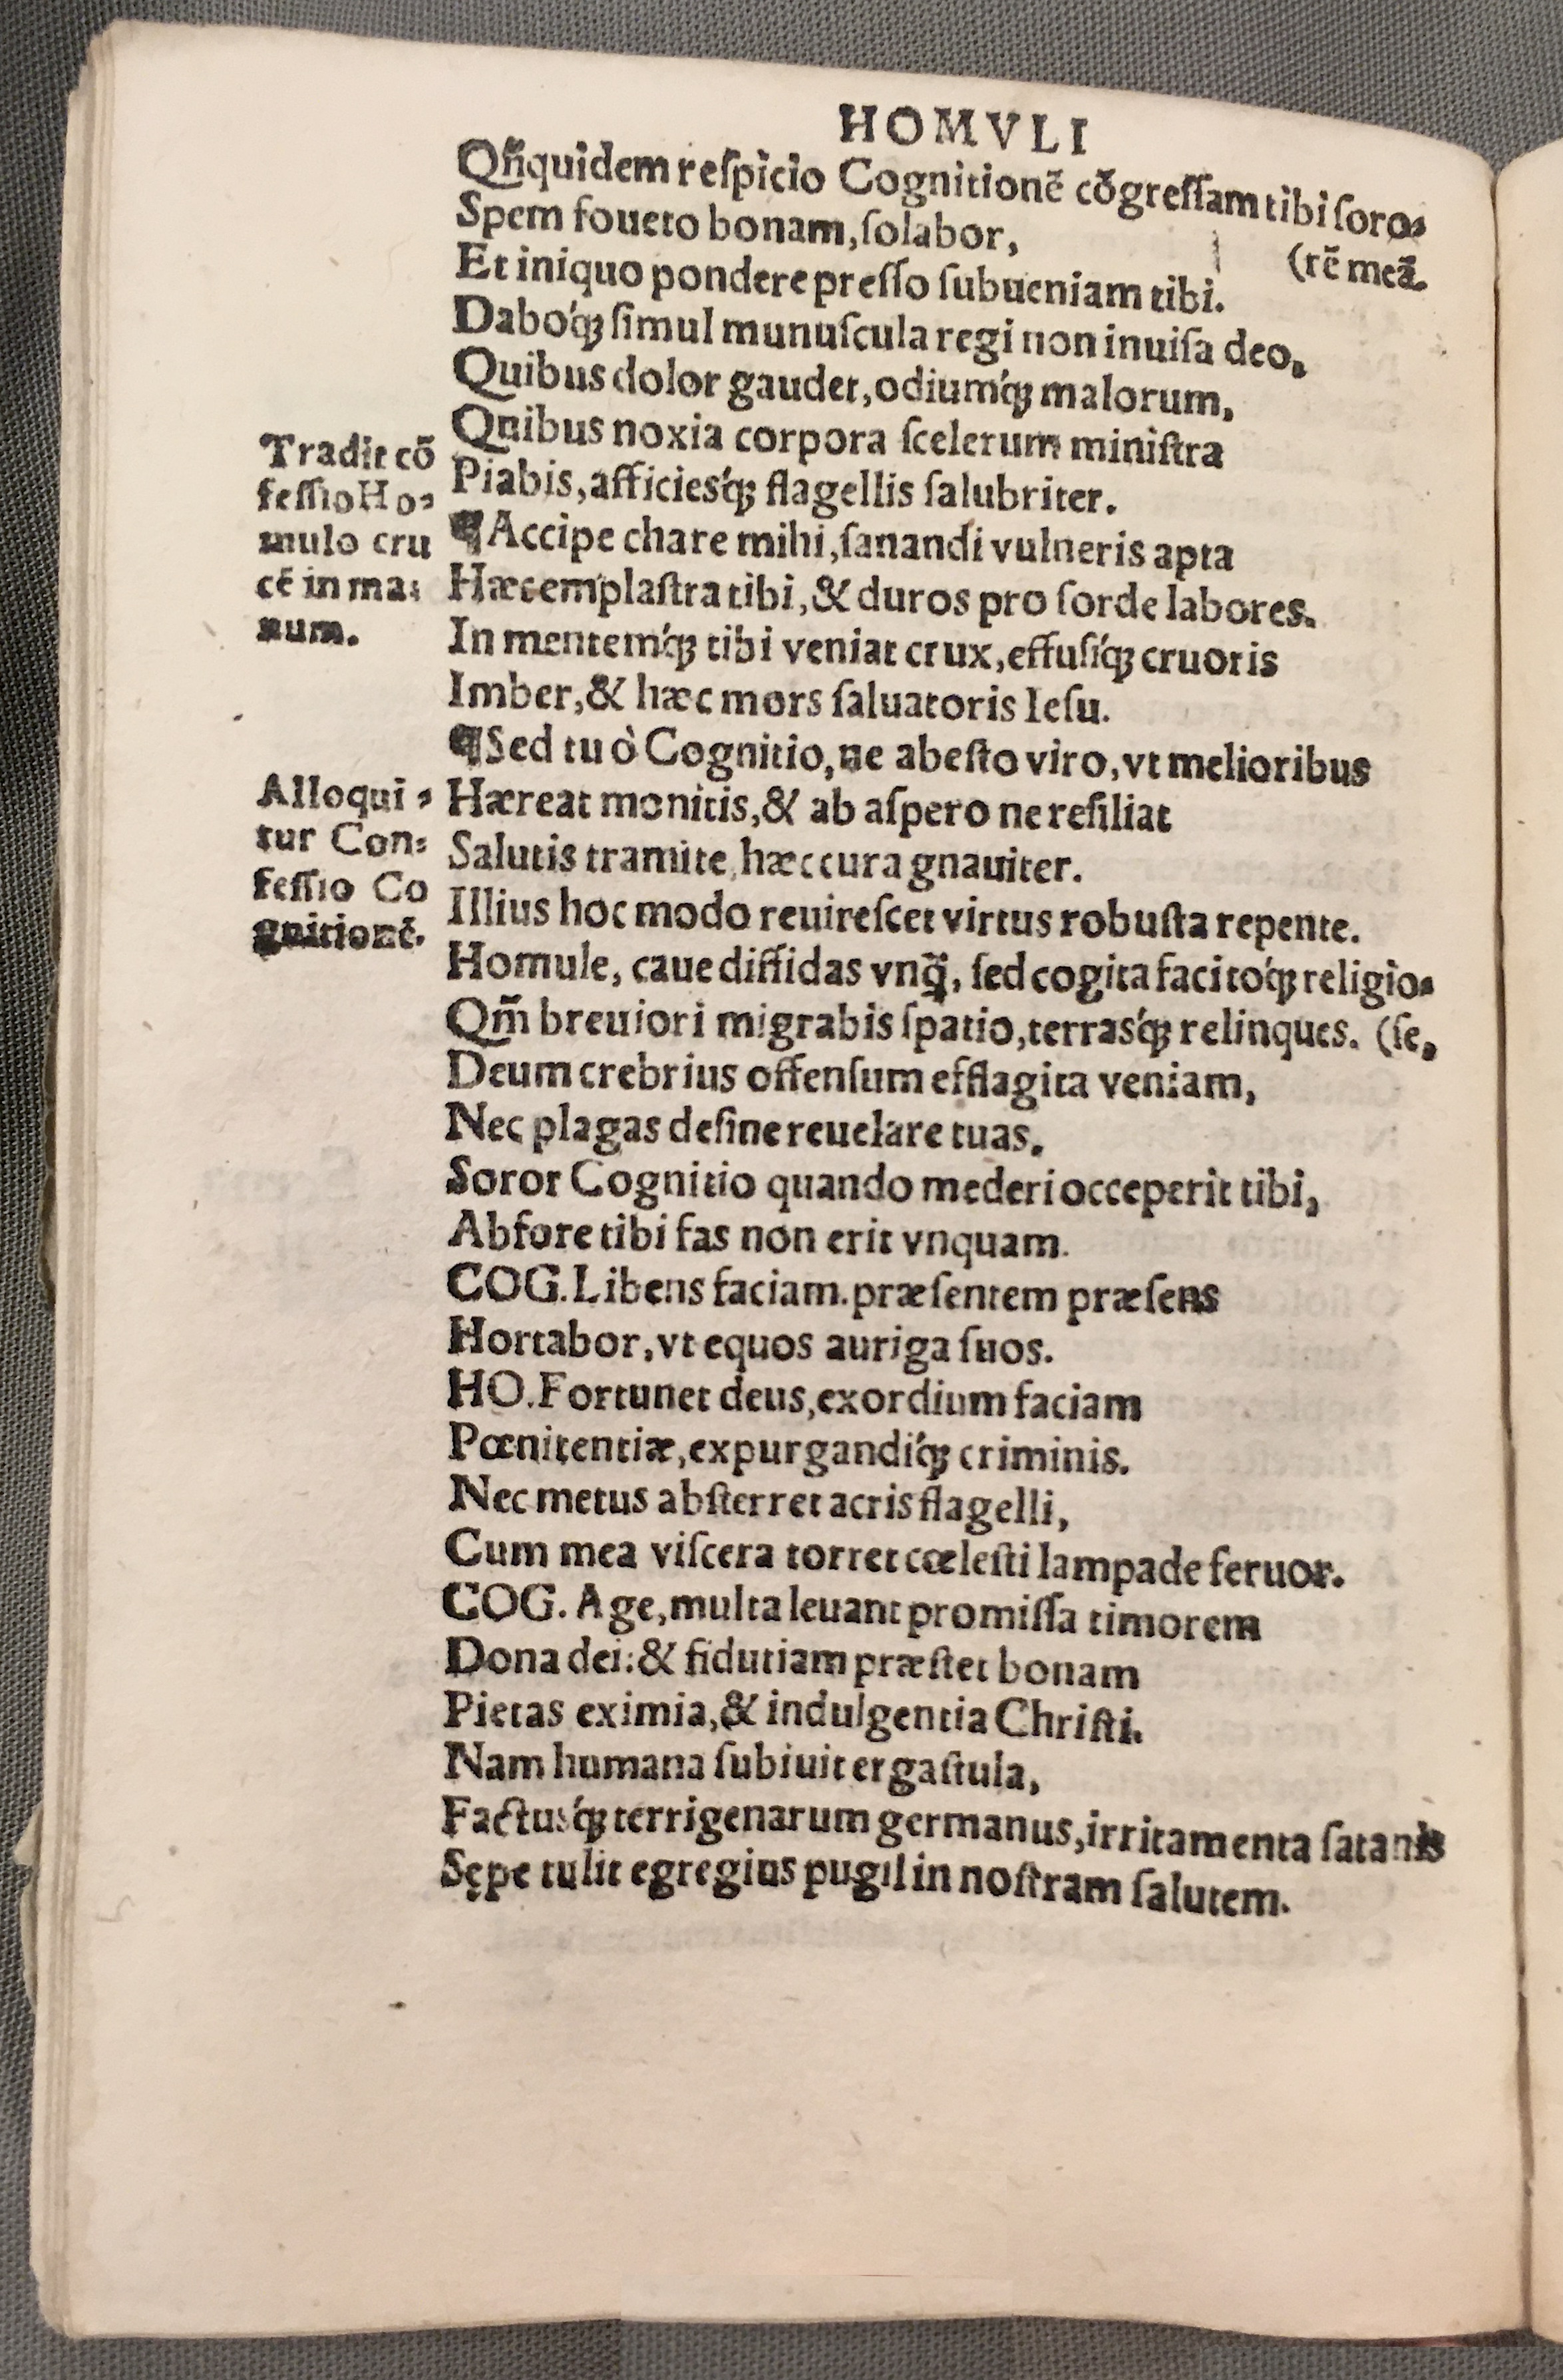 HOMVLI
Qñquidem reſpicio Cognitionē cōgreſſam tibi ſoro⸗
Spem foueto bonam, ſolabor,
(rē meā.
Et iniquo pondere preſſo ſubueniam tibi.
Dabo'q́ꝫ ſimul munuſcula regi non inuiſa deo,
Quibus dolor gaudet, odium'q́ꝫ malorum,
Quibus noxia corpora ſcelerum miniſtra
Piabis, afficies'q́ꝫ flagellis ſalubriter.
¶Accipe chare mihi, ſanandi vulneris apta
Hæc emplaſtra tibi, & duros pro ſorde labores.
In mentem'q́ꝫ tibi veniat crux, effuſi'q́ꝫ cruoris
Imber, & hæc mors ſaluatoris Ieſu.
¶Sed tu ò Cognitio, ne abeſto viro, vt melioribus
Hæreat monitis, & ab aſpero ne reſiliat
Salutis tramite, hæc cura gnauiter.
Illius hoc modo reuireſcet virtus robuſta repente.
Homule, caue diffidas vnq̃, ſed cogita facito'q́ꝫ religio⸗
Qm̃ breuiori migrabis ſpatio, terras'q́ꝫ relinques. (ſe,
Deum crebrius offenſum efflagita veniam,
Nec plagas deſine reuelare tuas.
Soror Cognitio quando mederi occeperit tibi,
Abfore tibi fas non erit vnquam.
COG. Libens faciam. præſentem præſens
Hortabor, vt equos auriga ſuos.
HO. Fortunet deus, exordium faciam
Pœnitentiæ, expurgandi'q́ꝫ criminis.
Nec metus abſterret acris flagelli,
Cum mea viſcera torret cœleſti lampade feruor.
COG. Age, multa leuant promiſſa timorem
Dona dei: & fidutiam præſtet bonam
Pietas eximia, & indulgentia Chriſti.
Nam humana ſubiuit ergaſtula,
Factus'q́ꝫ terrigenarum germanus, irritamenta ſatanis
Sępe tulit egregius pugil in noſtram ſalutem.
Tradit cō
feſſio Ho⸗
mulo cru
cē in ma⸗
num.
Alloqui⸗
tur Con⸗
feſſio Co
gnitionē.